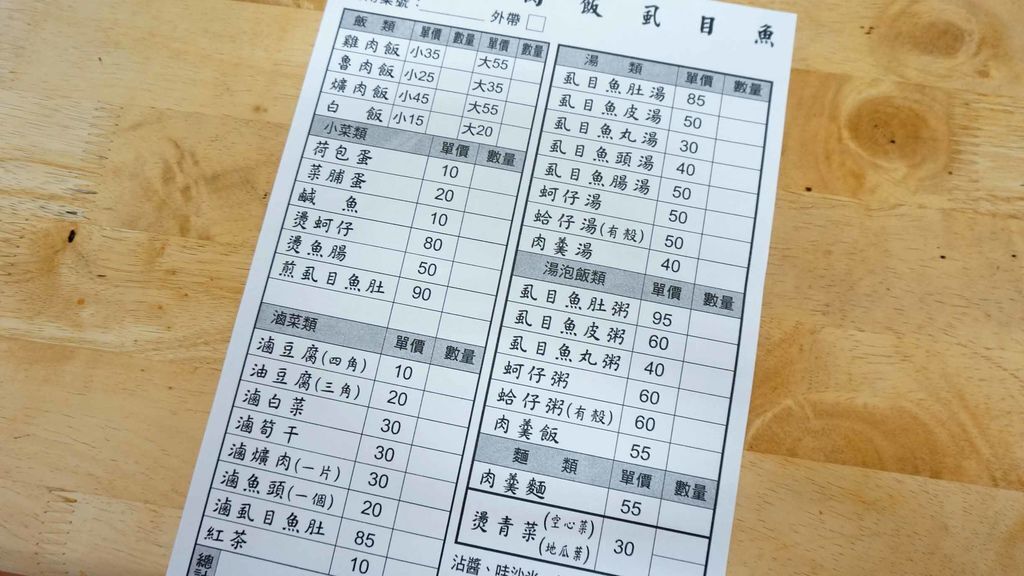 外帶
飯 虱 目 魚
飯 類 單價 數量 單價 數量
雞肉飯 小35 大55
魯肉飯 小25 大35
爌肉飯 小45 大55
白 飯 小15 大20
小菜類 單價 數量
荷包蛋 10
菜脯蛋 20
鹹 魚 10
燙蚵仔 80
燙魚腸 50
煎虱目魚肚 90
滷菜類 單價 數量
滷豆腐(四角) 10
油豆腐(三角) 20
滷白菜 30
滷筍干 30
滷爌肉(一片) 30
滷魚頭(一個) 20
滷虱目魚肚 85
紅茶 10
總
湯 類 單價 數量
虱目魚肚湯 85
虱目魚皮湯 50
虱目魚丸湯 30
虱目魚頭湯 40
虱目魚腸湯 50
蚵仔湯 50
蛤仔湯(有殼) 50
肉羹湯 40
湯泡飯類 單價 數量
虱目魚肚粥 95
虱目魚皮粥 60
虱目魚丸粥 40
蚵仔粥 60
蛤仔粥(有殼) 60
肉羹飯 55
麵 類 單價 數量
肉羹麵 55
燙青菜(空心菜)(地瓜葉) 30
沾醬、哇沙米